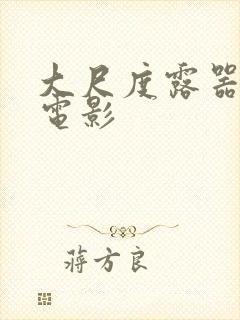 大尺度露器
電影
蔣方良